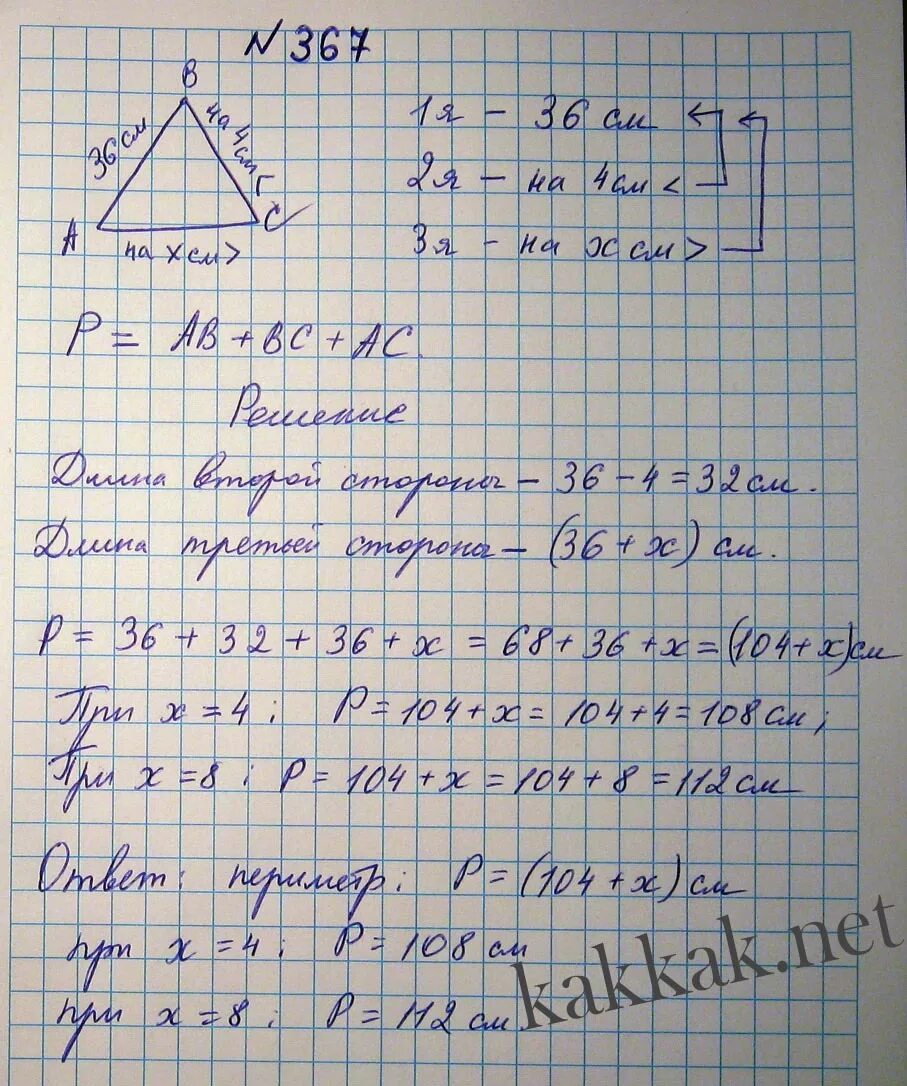 N 367
B
36 см
на 4 см <
A
C
на x см >
1я - 36 см
2я - на 4 см <
3я - на x см >
P = AB + BC + AC.
Решение
Длина второй стороны - 36 - 4 = 32 см.
Длина третьей стороны - (36 + x) см.
P = 36 + 32 + 36 + x = 68 + 36 + x = (104 + x) см
При x = 4 ; P = 104 + x = 104 + 4 = 108 см ;
При x = 8 ; P = 104 + x = 104 + 8 = 112 см
Ответ: периметр: P = (104 + x) см
при x = 4 ; P = 108 см
при x = 8 ; P = 112 см
kakkak.net